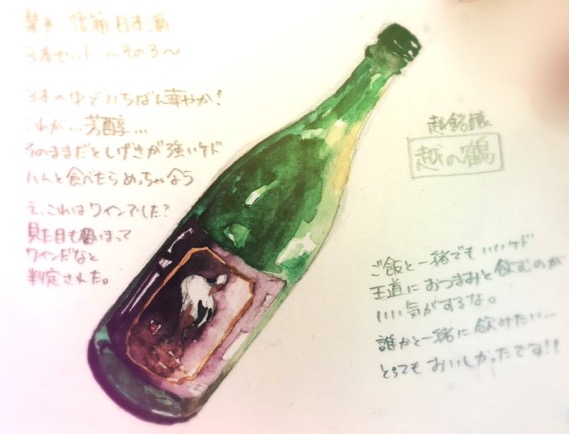 楽天 復箱日本酒
3本セット 〜その3〜
3本の中でいちばん華やか!
これが…芳醇…
そのままだとしげきが強いケド
ハムと食べたらめっちゃ合う
え、これはワインでした?
見た目も相まって
ワインだなと
判定された。
越銘醸
越の鶴
ご飯と一緒でもいいケド
王道におつまみと飲むのが
いい気がするな。
誰かと一緒に飲みたい…
とってもおいしかったです!!